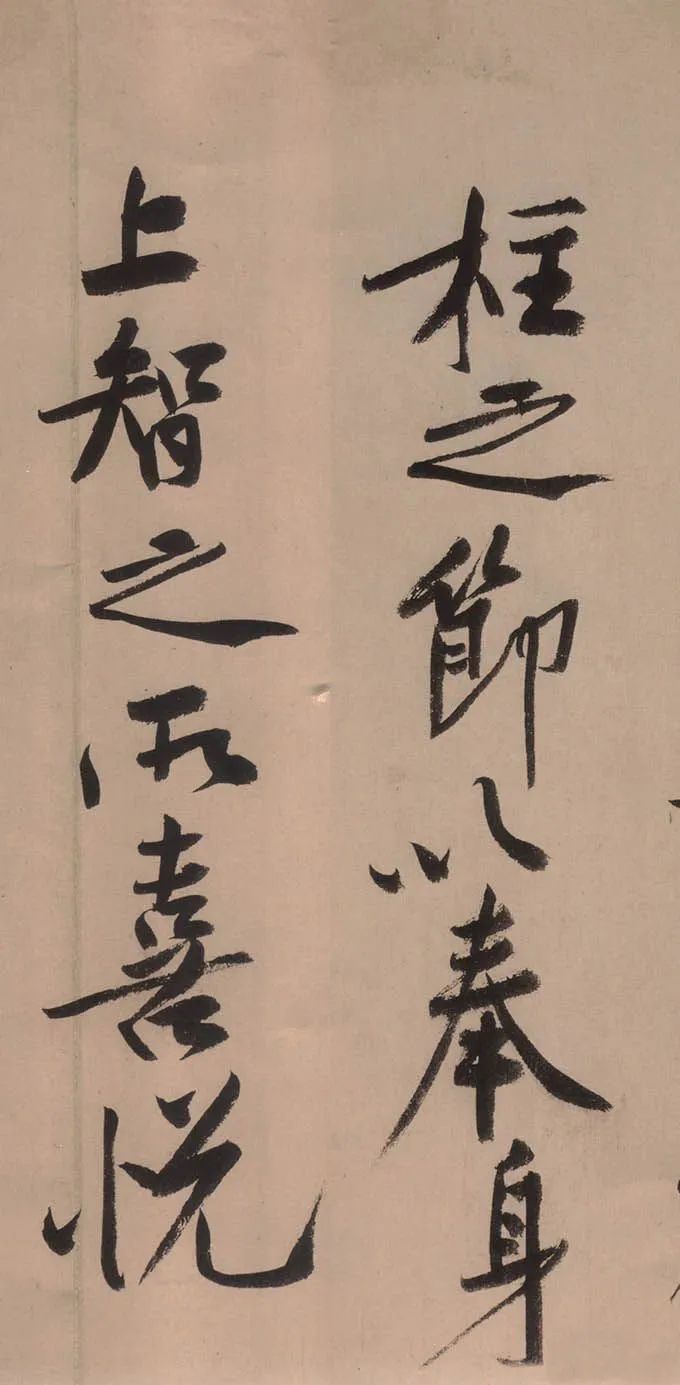 柱之節以奉身
上智之所喜悅